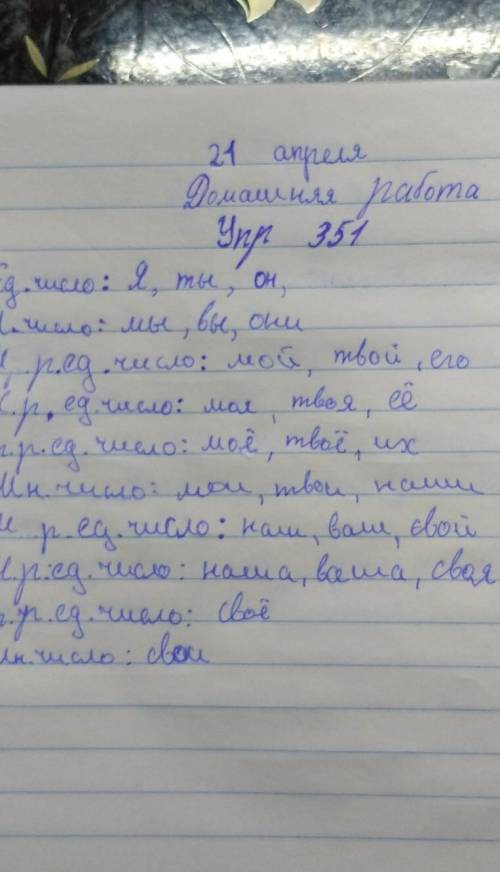 21 апреля
Домашняя работа
Упр 351
Ед.число: Я, ты, он,
.число: мы, вы, они
р.ед.число: мой, твой, его
.р. ед.число: моя, твоя, её
.р.ед.число: моё, твоё, их
Мн.число: мои, твои, наши
р.ед.число: наш, ваш, свой
.р.ед.число: наша, ваша, своя
.р.ед.число: своё
Мн.число: свои